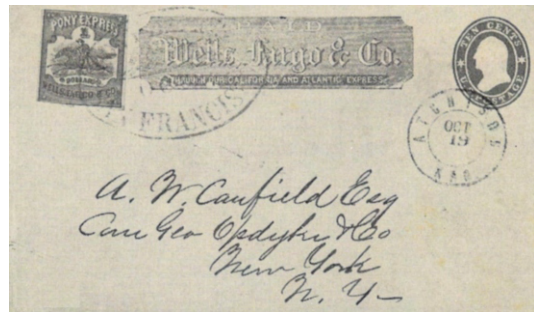 PONY EXPRESS
PAID
Wells, Fargo & Co.
CALIFORNIA AND ATLANTIC EXPRESS.
TEN CENTS
U.S. POSTAGE
FRANCIS
ATCHISON
OCT
19
KAS.
A. W. Canfield Esq
Care Geo Opdyke & Co
New York
N. Y.